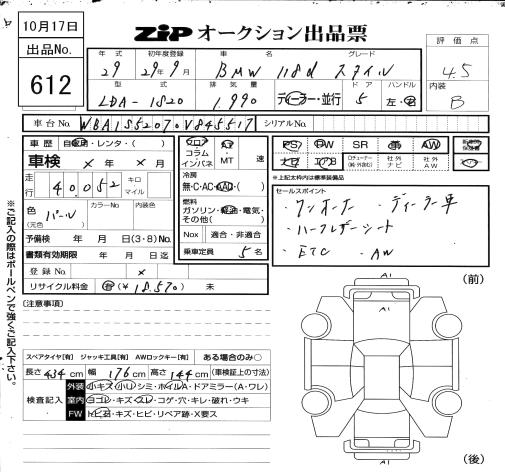 10月17日
出品No.
612
ZIP オークション出品票
年式 初年度登録 車名 グレード
29 29年9月 BMW 118d スタイル
型式 排気量 ドア ハンドル
LDA-1S20 1,990 ディーラー・並行 5 左・右
評価点
4.5
内装
B
車台No. WBA1S52070V845517 シリアルNo.
車歴 自家用・レンタ・( )
車検 × 年 × 月
走行 40,052 キロ マイル
色 (元色) パール カラーNo. 内装色
予備検 年 月 日(3・8)No.
書類有効期限 年 月 日迄
登録No. ×
リサイクル料金 有(¥18,570) 未
フロア コラム インパネ AT・MT 速
冷房
無・C・AC・AAC・( )
燃料
ガソリン・軽油・電気・その他( )
Nox 適合・非適合
乗車定員 5名
PS PW SR 革 AW
ナビ TV ロナューナー (車・外含む) 社外ナビ 社外AW
※上記太枠内は標準装備品
セールスポイント
・ワンオーナー ・ディーラー車
・ハーフレザーシート
・ETC ・AW
(注意事項)
スペアタイヤ[有] ジャッキ工具[有] AWロックキー[有] ある場合のみ○
長さ434cm 幅176cm 高さ144cm (車検証上の寸法)
検査記入
外装 小キズ・小リ・シミ・ホイルA・ドアミラー(A・ワレ)
室内 ヨゴレ・キズ・スレ・コゲ・穴・キレ・破れ・ウキ
FW トビ石・キズ・ヒビ・リペア跡・X要ス
※ご記入の際はボールペンで強くご記入下さい。
A1
(前)
A1
(後)